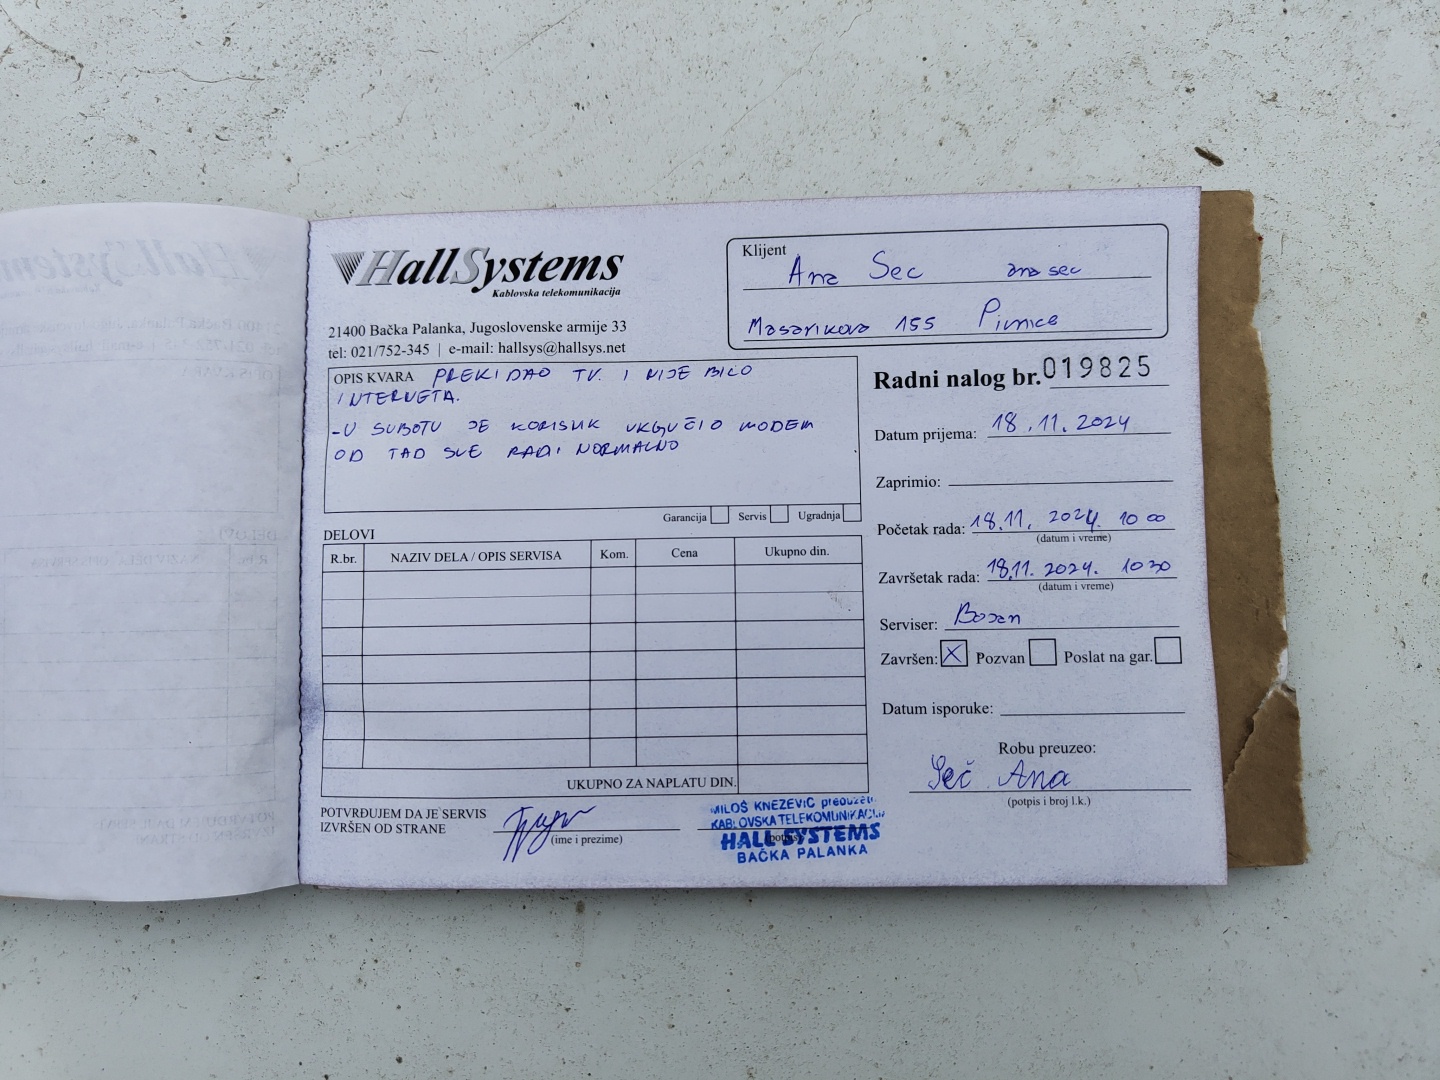 HallSystems
Kablovska telekomunikacija
21400 Bačka Palanka, Jugoslovenske armije 33
tel: 021/752-345 | e-mail: hallsys@hallsys.net
Klijent
Ana Sec ana sec
Masarikova 155 Pivnice
OPIS KVARA PREKIDAO TV. I NIJE BILO
INTERNETA.
-U SUBOTU JE KORISNIK UKLJUČIO MODEM
OD TAD SVE RADI NORMALNO
Garancija Servis Ugradnja
Radni nalog br. 019825
Datum prijema: 18.11.2024
Zaprimio:
Početak rada: 18.11. 2024. 10 00
(datum i vreme)
Završetak rada: 18.11. 2024. 10 30
(datum i vreme)
Serviser: Bojan
Završen: X Pozvan Poslat na gar.
Datum isporuke:
Robu preuzeo:
Seč Ana
(potpis i broj l.k.)
DELOVI
R.br. NAZIV DELA / OPIS SERVISA Kom. Cena Ukupno din.
UKUPNO ZA NAPLATU DIN.
POTVRĐUJEM DA JE SERVIS
IZVRŠEN OD STRANE
(ime i prezime)
MILOŠ KNEZEVIĆ preduzetn.
KABLOVSKA TELEKOMUNIKACIJA
HALL SYSTEMS
BAČKA PALANKA